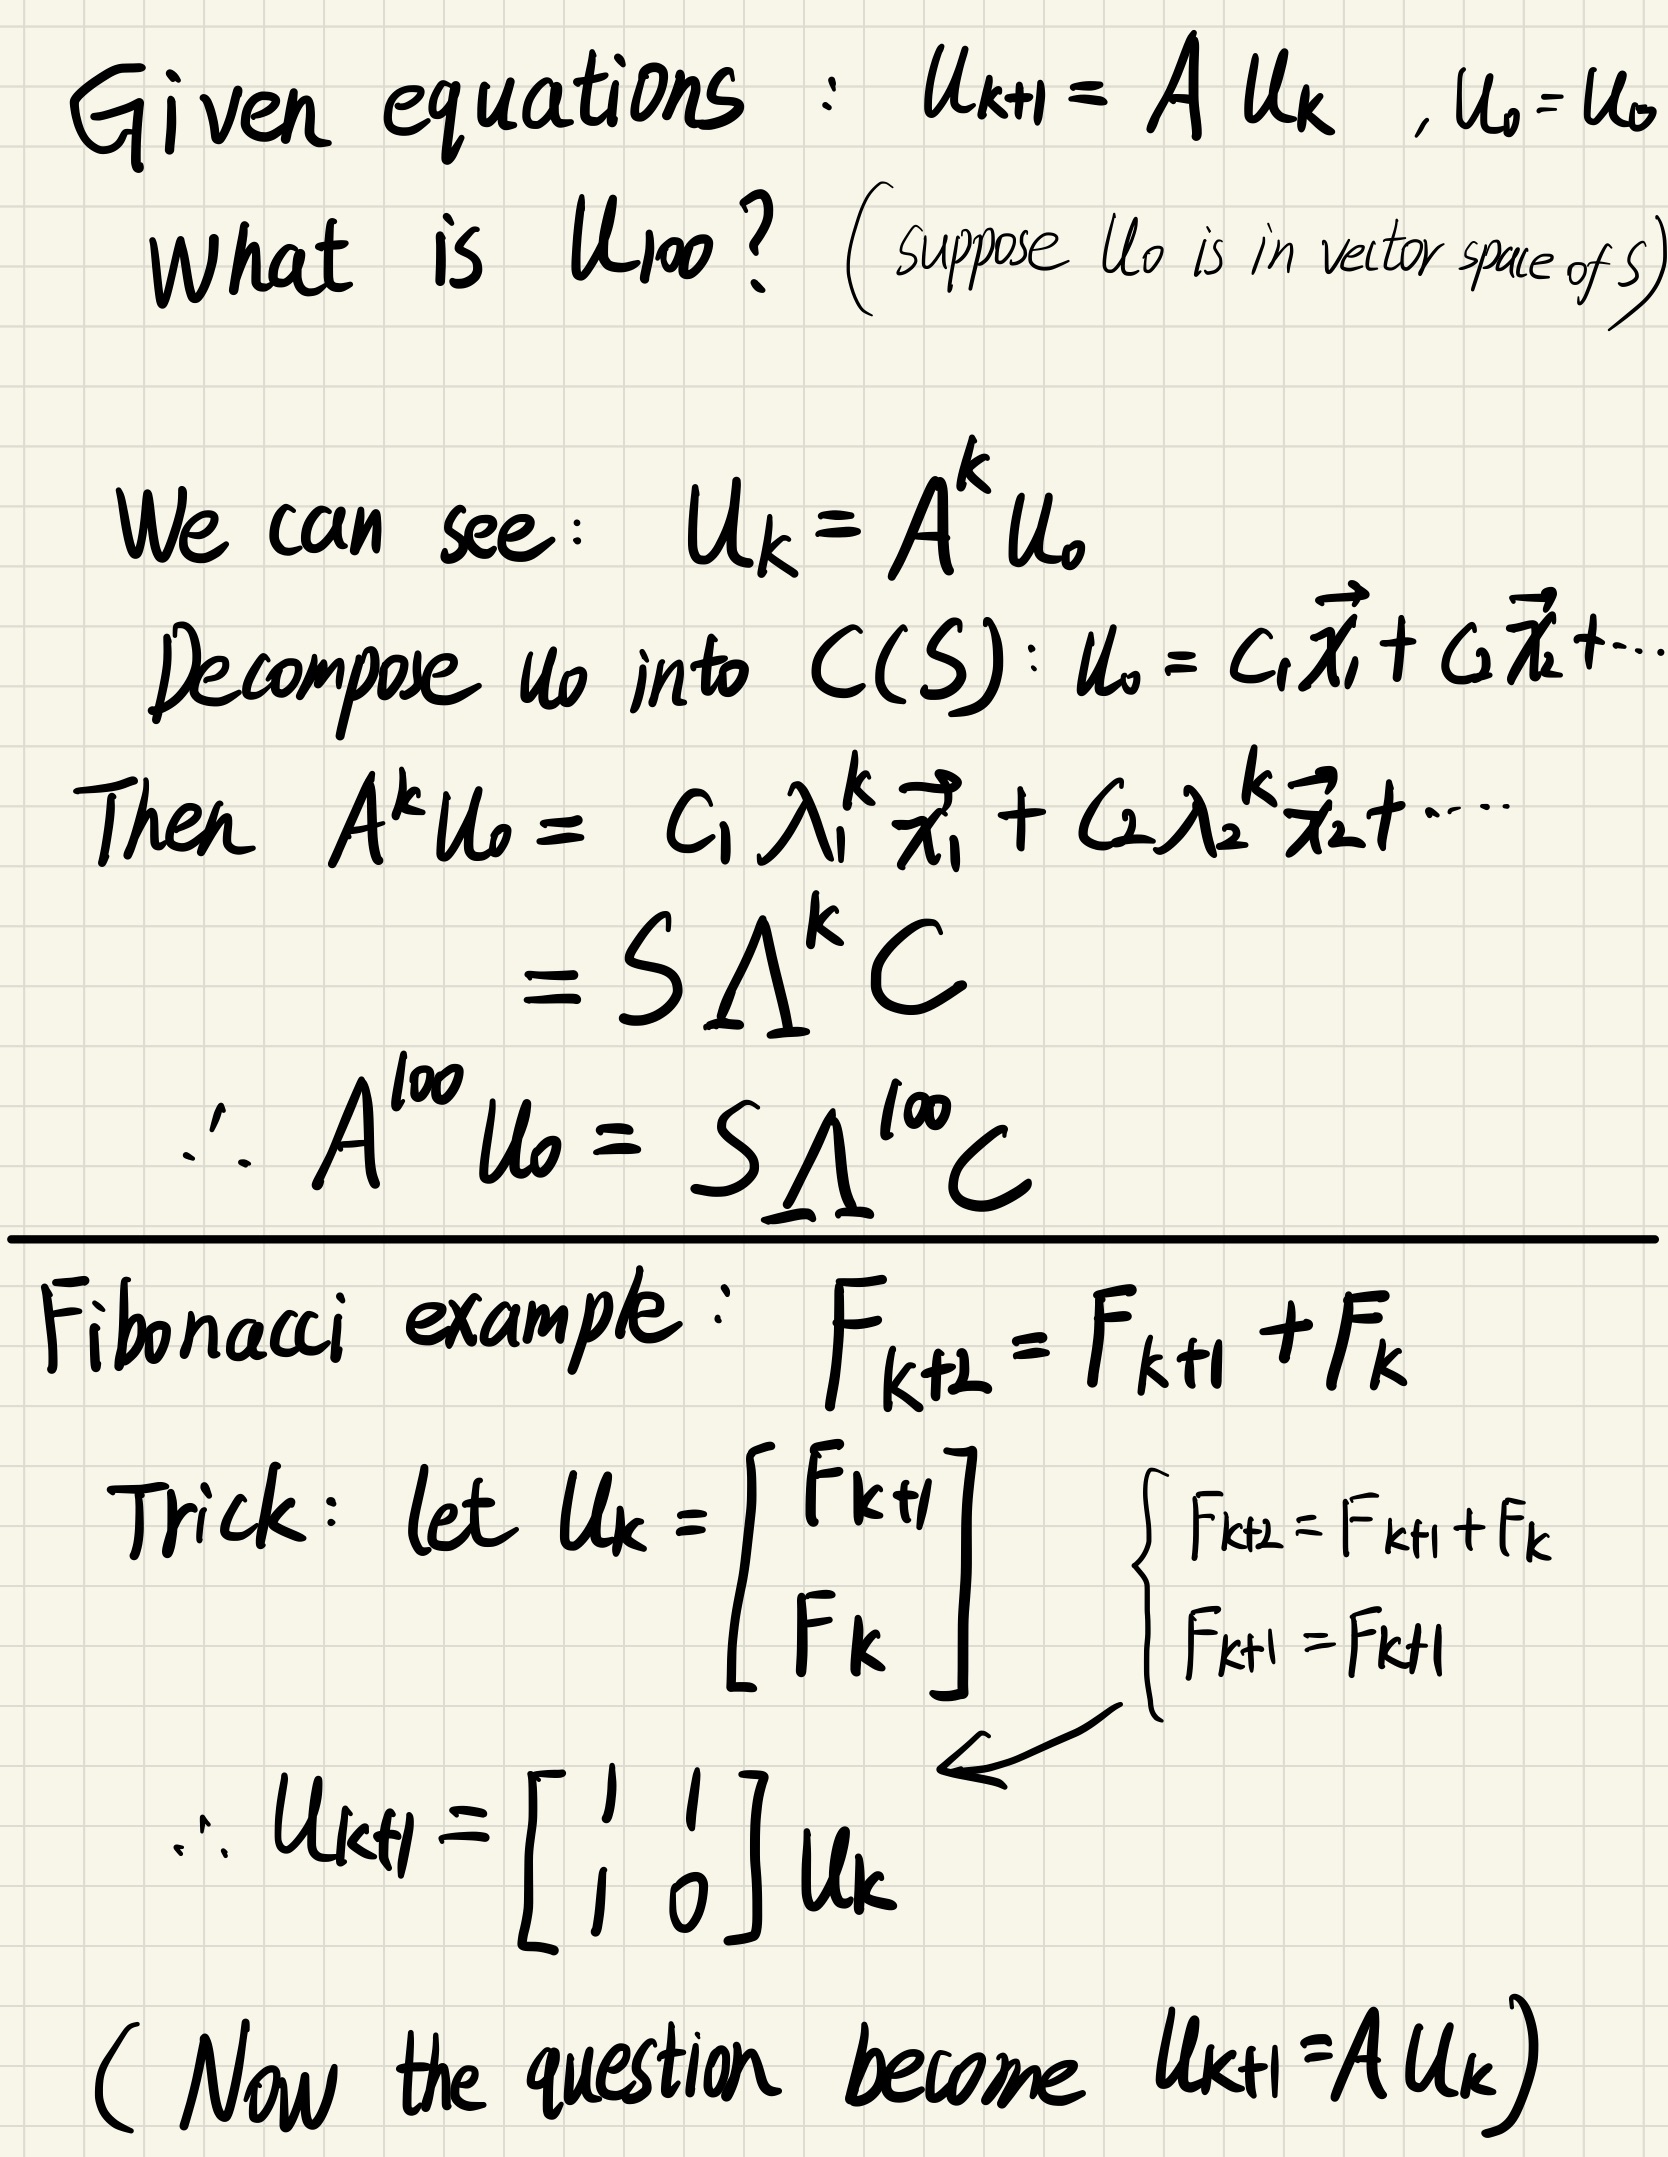 Given equations : U_{k+1} = A U_k , U_0 = U_0
What is U_{100}? (suppose U_0 is in vector space of S)
We can see: U_k = A^k U_0
Decompose u_0 into C(S): U_0 = C_1 \vec{x_1} + C_2 \vec{x_2} + ·····
Then A^k U_0 = C_1 λ_1^k \vec{x_1} + C_2 λ_2^k \vec{x_2} + ·····
= S Λ^k C
∴ A^{100} U_0 = S Λ^{100} C
Fibonacci example: F_{k+2} = F_{k+1} + F_k
Trick: let U_k = [F_{k+1} ; F_k] { F_{k+2} = F_{k+1} + F_k
F_{k+1} = F_{k+1}
∴ U_{k+1} = [1 1 ; 1 0] U_k
(Now the question become U_{k+1} = A U_k)